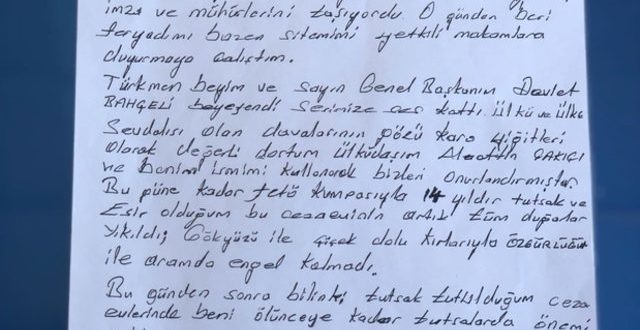 imza ve mühürlerini taşıyordu. O günden beri
feryadımı bazen sitemimi yetkili makamlara
duyurmaya çalıştım.
Türkmen beyim ve sayın Genel Başkanım Devlet
BAHÇELİ beyefendi sesinize ses kattı ülkü ve ülke
Sevdalısı olan davalarının gözü kara yiğitleri
olarak değerli dostum ülküdaşım Alaattin ÇAKICI
ve benim ismimi kullanarak bizleri onurlandırmıştır
Bu güne kadar fetö kumpasıyla 14 yıldır tutsak ve
Esir olduğum bu cezaevinin artık tüm duvarları
yıkıldı; Gökyüzü ile çiçek dolu kırlarıyla ÖZGÜRLÜĞÜM
ile aramda engel kalmadı.
Bu günden sonra bilinki, tutsak tutulduğum ceza
evlerinde beni ölünceye kadar tutsalarda önemi